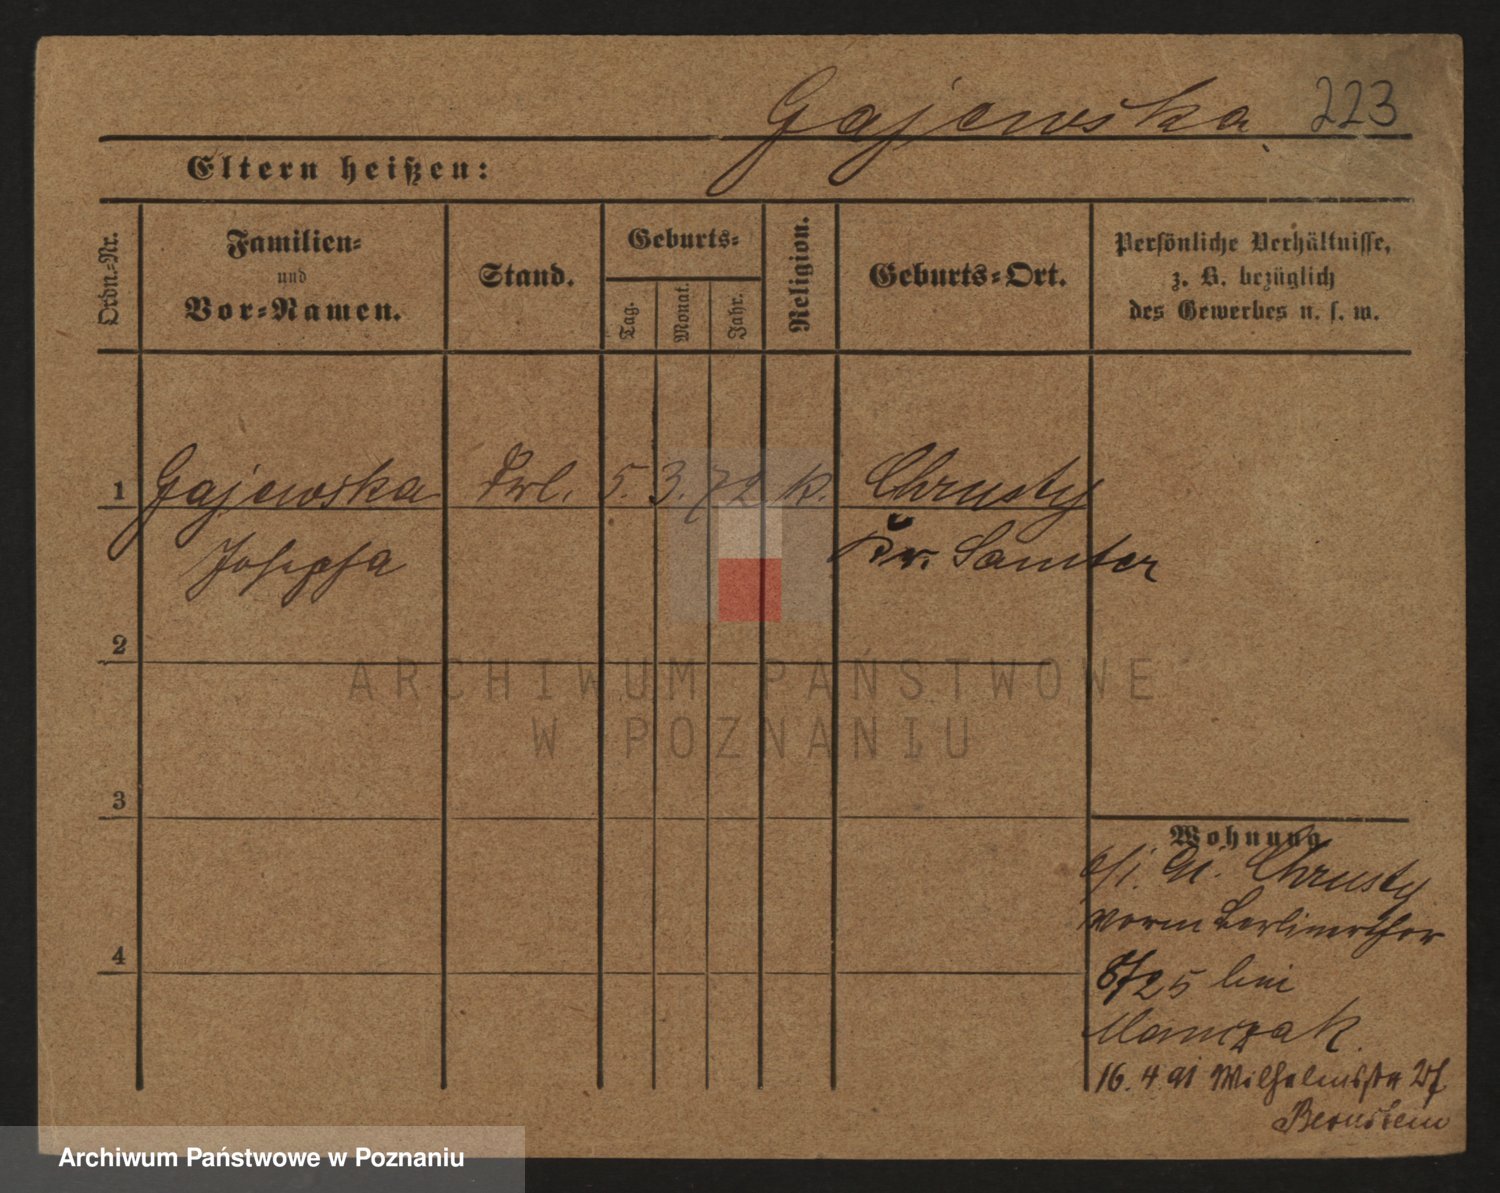 Gajewska 223
Eltern heißen:
Ordn.-Nr.
Familien-
und
Vor-Namen.
Stand.
Geburts-
Tag.
Monat.
Jahr.
Religion.
Geburts-Ort.
Persönliche Verhältnisse,
z. B. bezüglich
des Gewerbes u. s. w.
1 Gajewska Frl. 5. 3. 72 k. Chrusty
Josepha Kr. Samter
2
3
4
Wohnung
Chrusty
vorm Berlinerthor
bei
Mamczak
16. 4. 91 Wilhelmsstr
Bernstein
ARCHIWUM PAŃSTWOWE
W POZNANIU
Archiwum Państwowe w Poznaniu